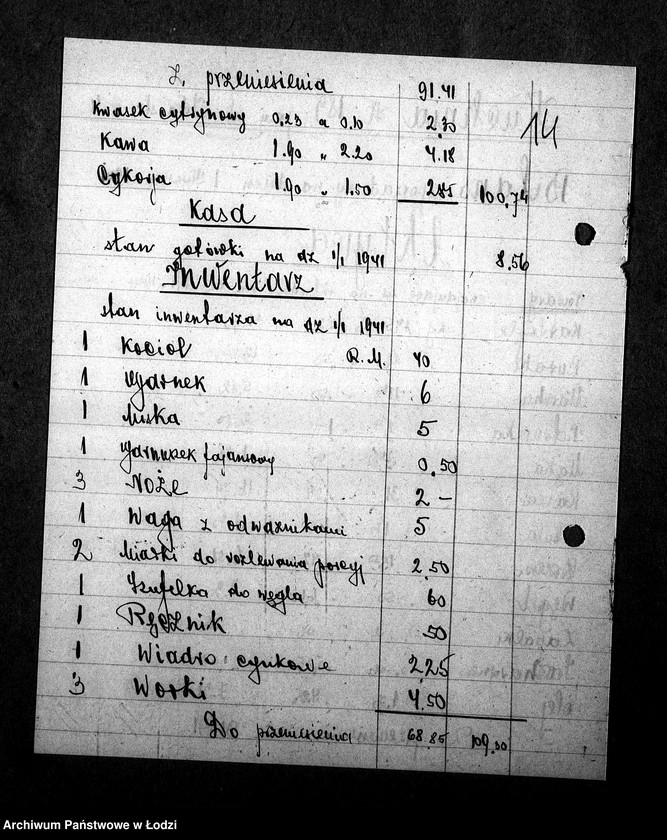 Z przeniesienia 91.41
14
Kwasek cytrynowy 0,23 a 0.10 2.30
Kawa 1.90 " 2.20 4.18
Cykorja 1.90 " 1.50 2.85 100,74
Kasa
stan gotówki na dz 1/I 1941 8.56
Inwentarz
stan inwentarza na dz 1/I 1941
1 Kocioł R.M. 40
1 Garnek 6
1 Miska 5
1 Garnuszek fajansowy 0,50
3 Noże 2 -
1 Waga z odważnikami 5
2 Miarki do rozlewania porcyj 2.50
1 Szufelka do węgla 60
1 Ręcznik 50
1 Wiadro cynkowe 2.25
3 Worki 4.50
Do przeniesienia 68.85 109.30
Archiwum Państwowe w Łodzi